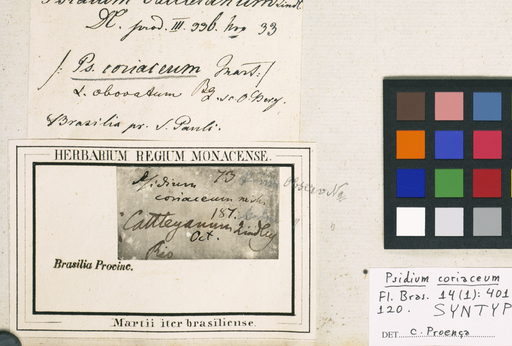 Psidium Cattleianum Lindl.
DC. prod. III. 236. no 33
/: Ps. coriaceum Mart:/
α. obovatum Bg
Brasilia pr. S. Pauli.
HERBARIUM REGIUM MONACENSE.
Psidium 73
coriaceum
187.
Cattleyanum Lindley
Oct.
Rio
Brasilia Provinc.
Martii iter brasiliense.
Psidium coriaceum
Fl. Bras. 14(1): 401
120. SYNTYP
DET C. Proença